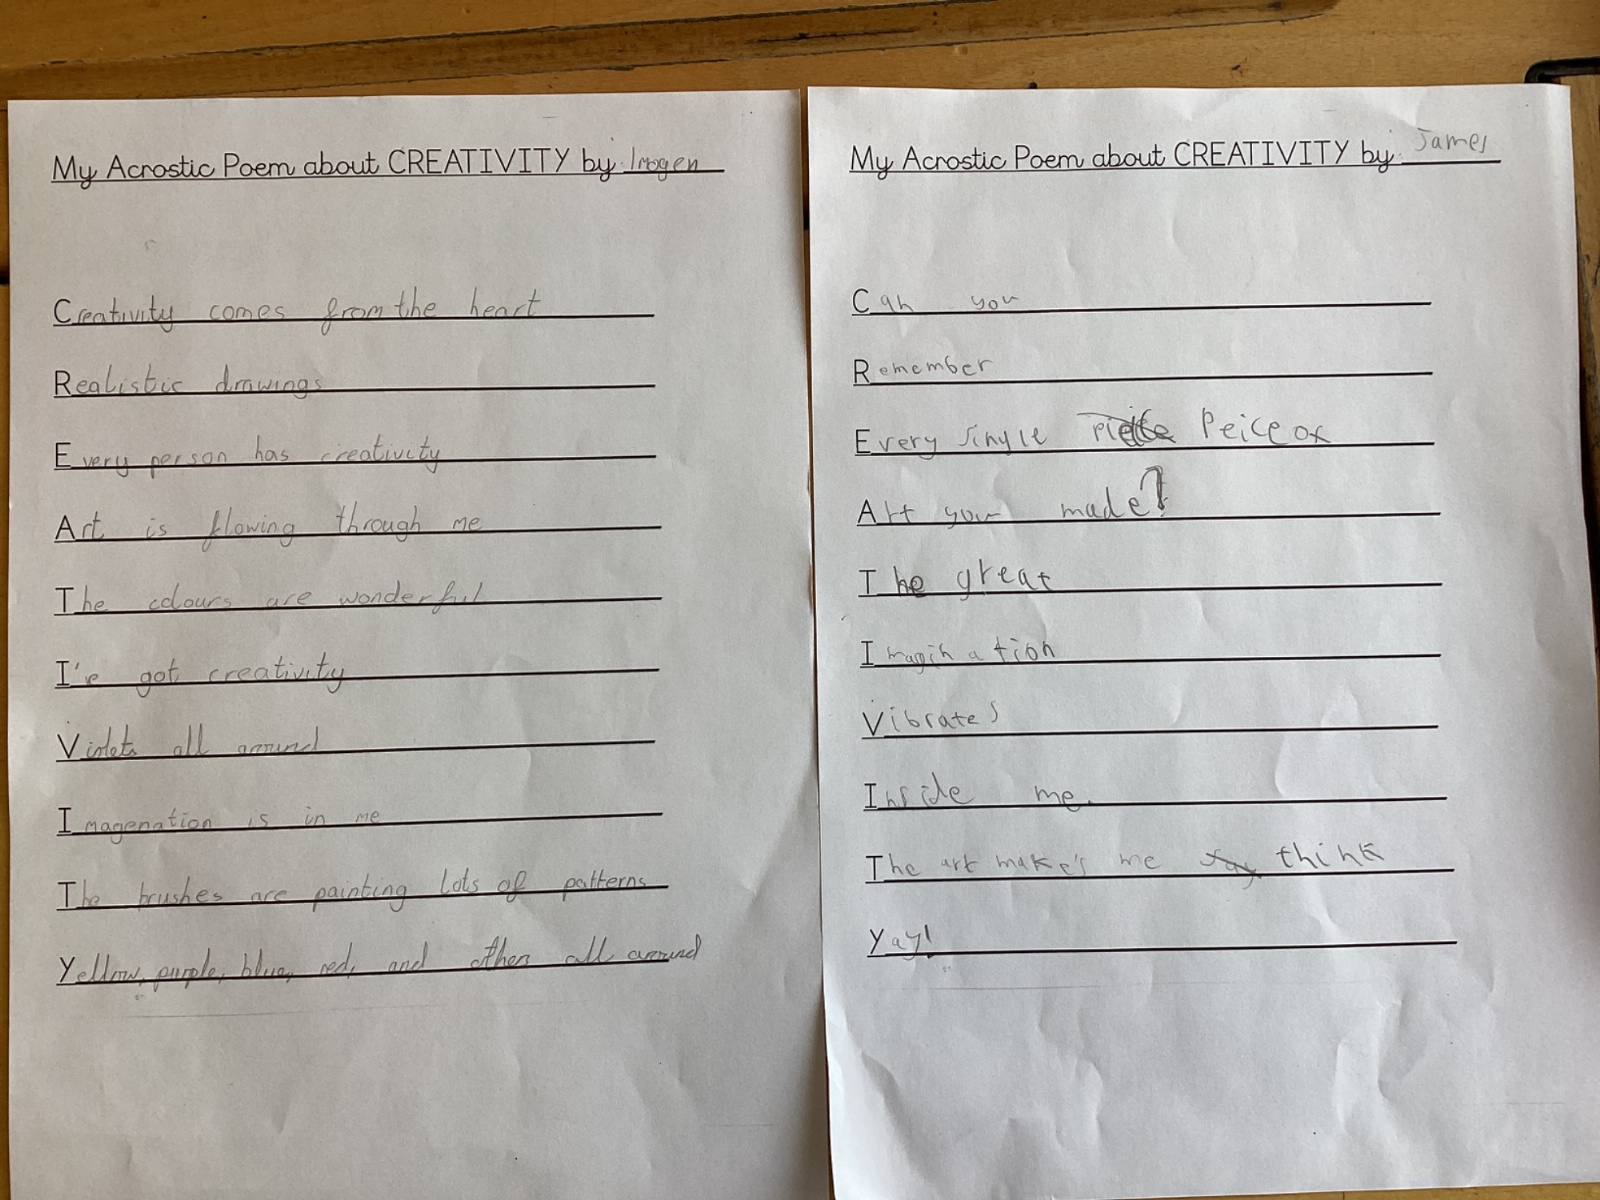 My Acrostic Poem about CREATIVITY by Imogen
Creativity comes from the heart
Realistic drawings
Every person has creativity
Art is flowing through me
The colours are wonderful
I've got creativity
Violets all around
Imagenation is in me
The brushes are painting lots of patterns
Yellow, purple, blue, red, and others all around
My Acrostic Poem about CREATIVITY by James
Can you
Remember
Every single Peice of
Art your made?
The great
Imagination
Vibrates
Inside me.
The art make's me think
Yay!